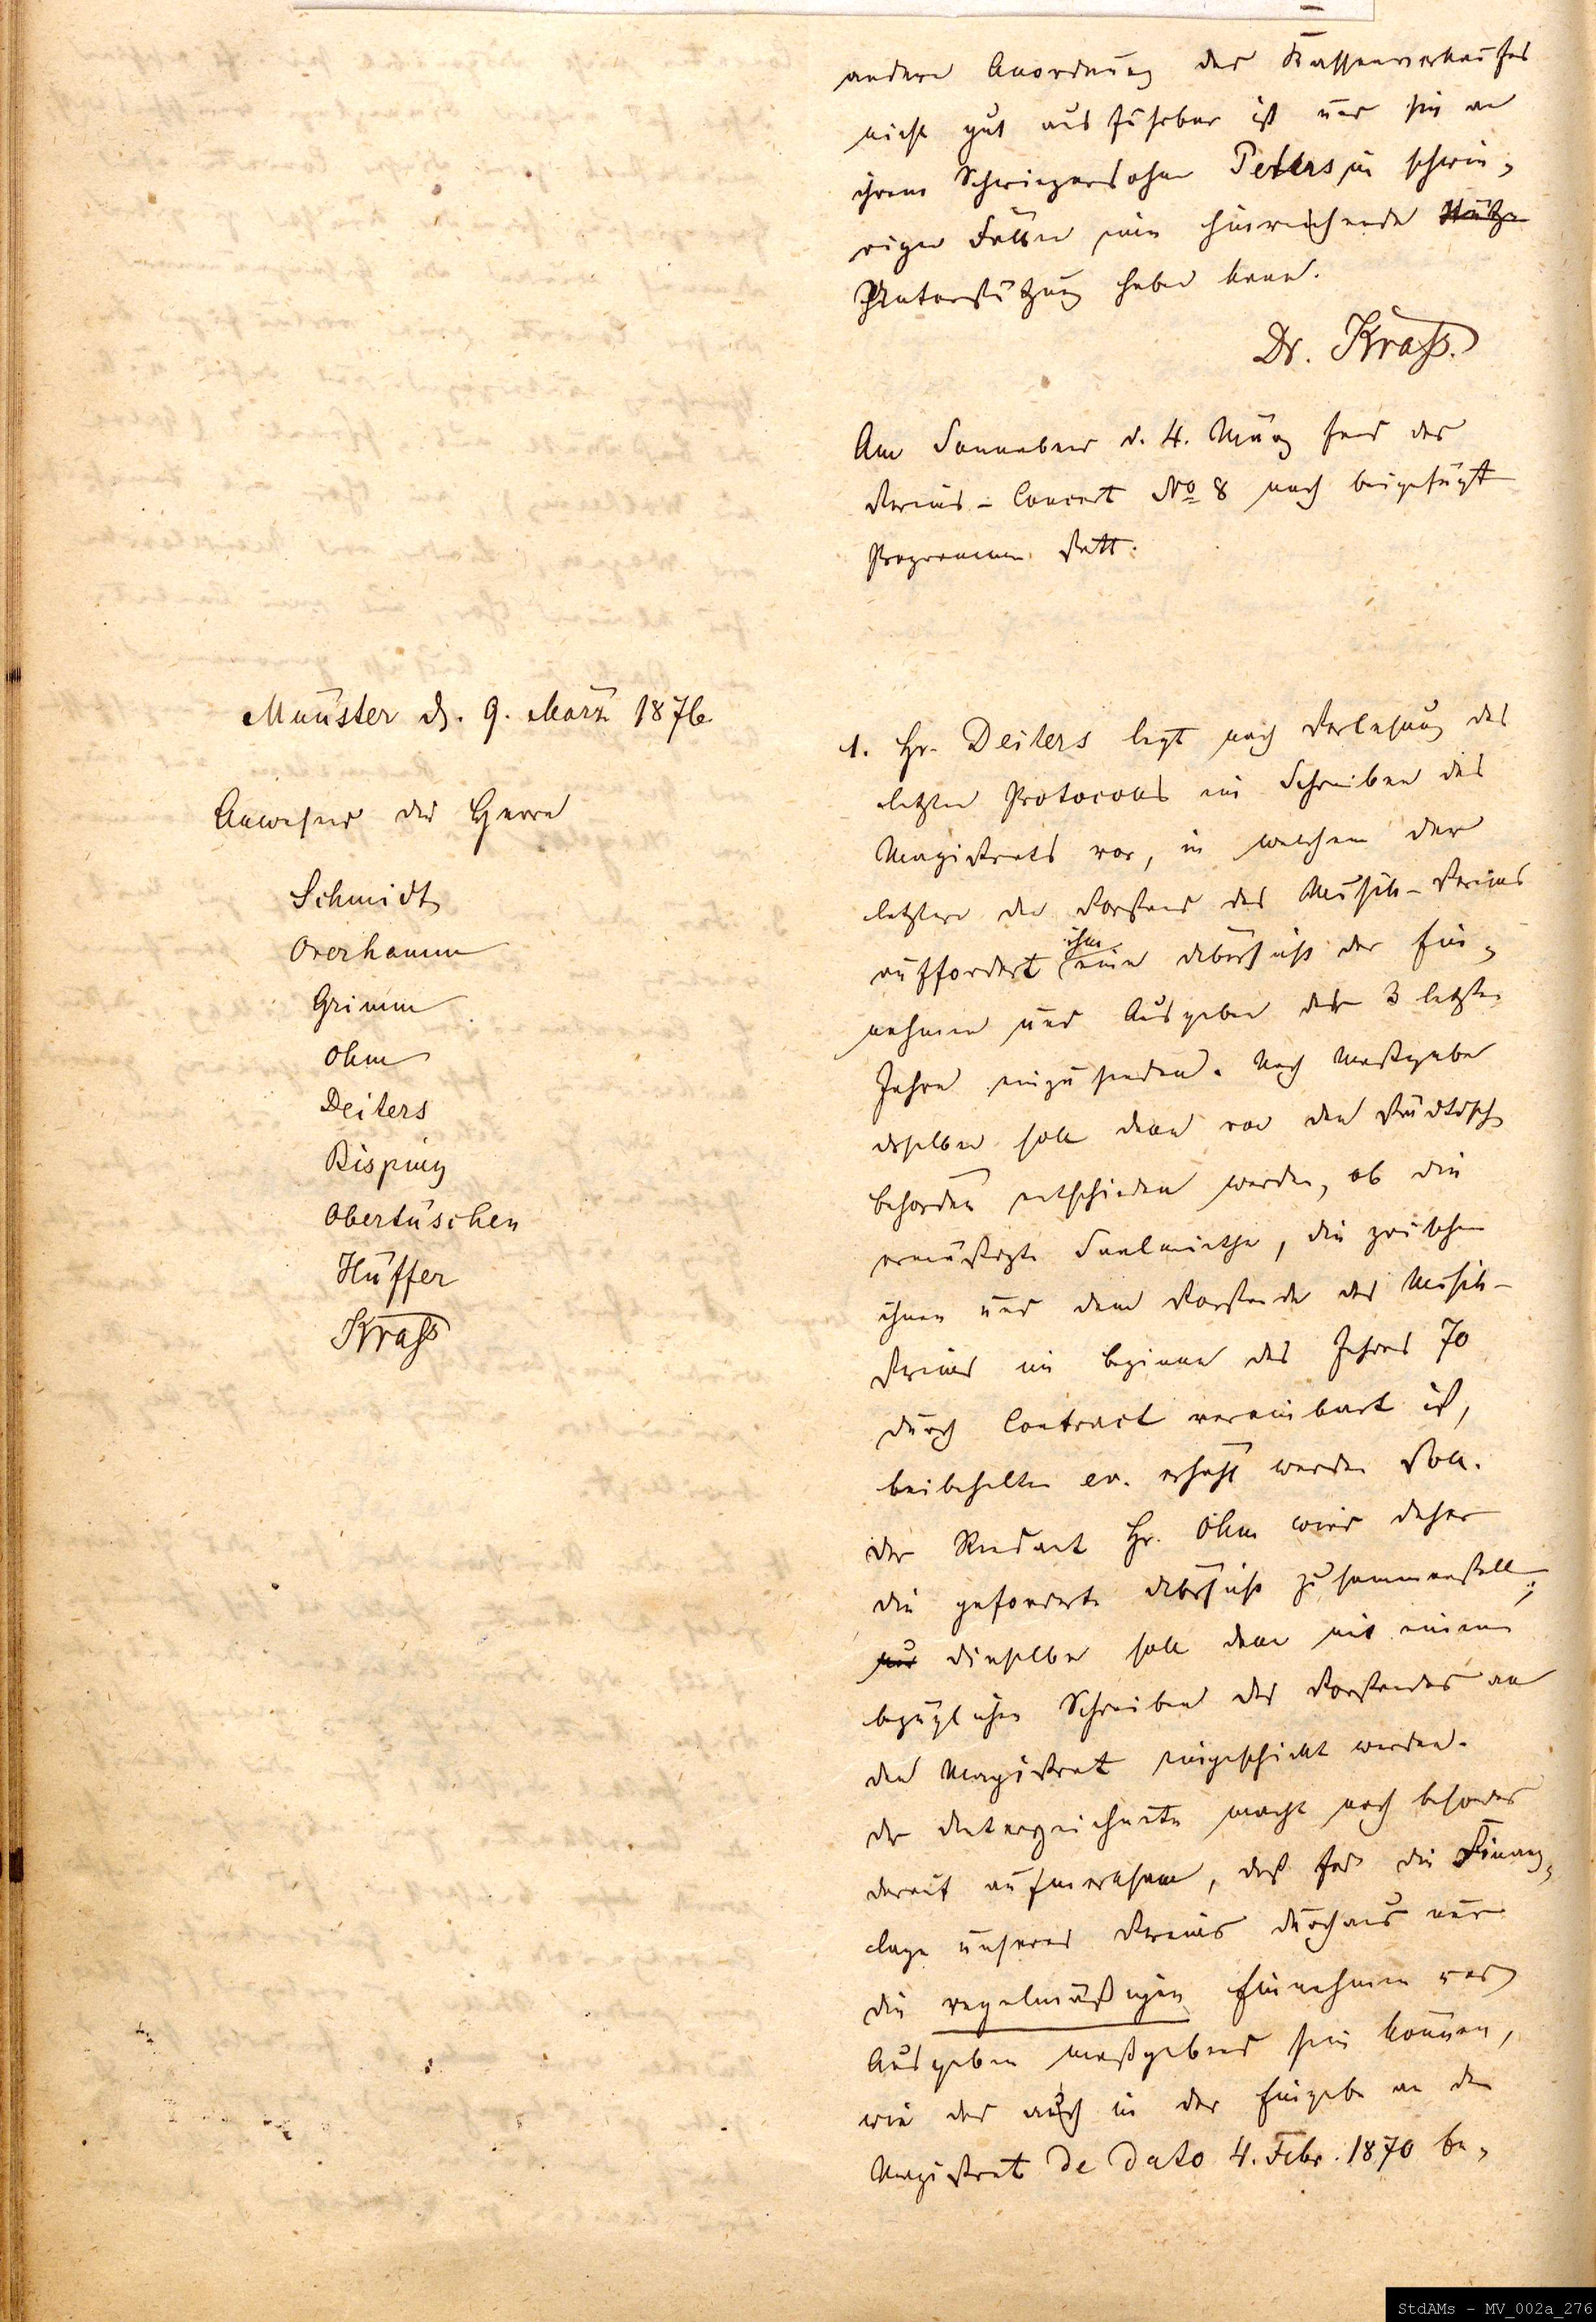 andere Anordnung des Kassenverkaufes
nicht gut ausführbar ist und sie an
ihrem Schwiegersohne Peters in schwie-
rigen Fällen eine hinreichende Stütze
Unterstützung haben kann.
Dr. Kraß.
Am Sonnabend d. 4. März fand das
Vereins-Concert No 8 nach beigefügt
Programme statt.
Münster d. 9. März 1876.
Anwesend die Herren
Schmidt
Overhamm
Grimm
Ohm
Deiters
Bisping
Obertüschen
Hüffer
Kraß
1. Hr. Deiters legt nach Verlesung des
letzten Protocolls ein Schreiben des
Magistrats vor, in welchem der
letztere den Vorstand des Musik-Vereins
auffordert ihm eine Übersicht der Ein-
nahmen und Ausgaben der 3 letzten
Jahre einzusenden. Nach Maßgabe
derselben soll dann von den städtisch
Behörden entschieden werden, ob die
ermäßigte Saalmiethe, die zwischen
ihnen und dem Vorstande des Musik-
Vereins im Beginne des Jahres 70
durch Contract vereinbart ist,
beibehalten ev. erhöht werden soll.
Der Rendant Hr. Ohm wird daher
die geforderte Übersicht zusammenstell;
und dieselbe soll dann mit einem
bezüglichen Schreiben des Vorstandes an
den Magistrat eingeschickt werden.
Der Unterzeichnete macht noch besonders
darauf aufmerksam, daß für die Finanz-
lage unseres Vereins durchaus nur
die regelmäßigen Einnahmen und
Ausgaben maßgebend sein können,
wie das auch in der Eingabe an den
Magistrat de dato 4. Febr. 1870 be-
StdAMs - MV_002a_276